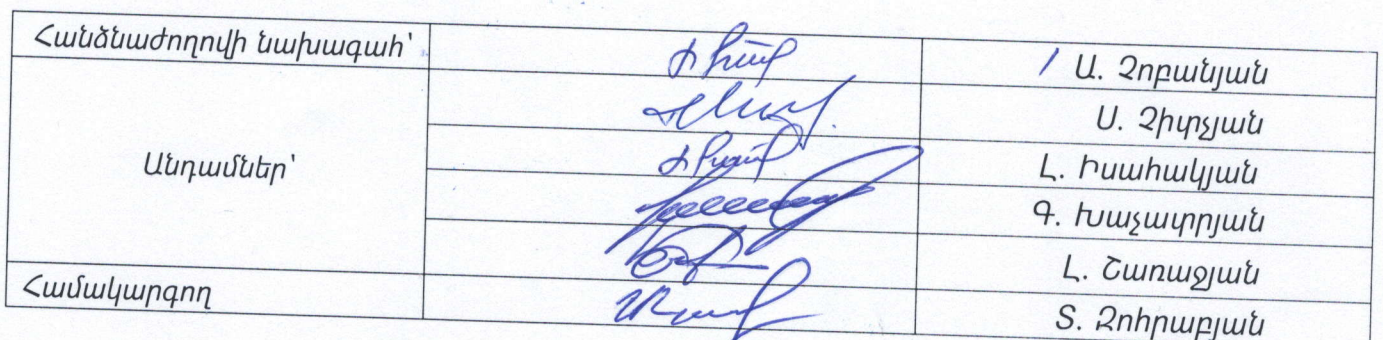 Հանձնաժողովի նախագահ՝
Ա. Չոբանյան
Ս. Չիտչյան
Անդամներ՝
Լ. Իսահակյան
Գ. Խաչատրյան
Լ. Շառաջյան
Համակարգող
Տ. Զոհրաբյան